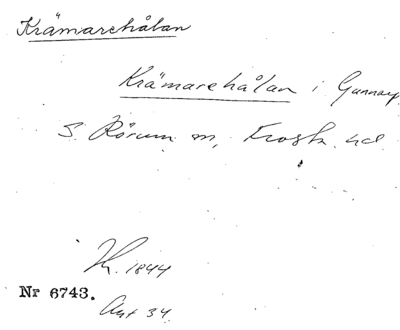 Krämarehålan
Krämarehålan i Gunnarp
S. Rörum sn, Frosta hd
1844
Nr 6743.
34